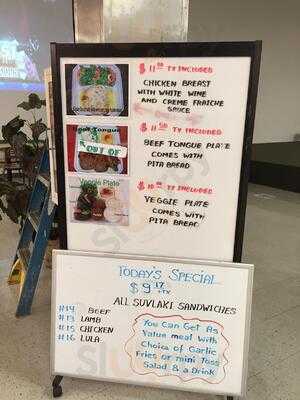 $ 11.50 TX INCLUDED
CHICKEN BREAST
WITH WHITE WINE
AND CREME FRAICHE
SAUCE
Beef Tongue
OUT OF
$ 11.50 TX INCLUDED
BEEF TONGUE PLATE
COMES WITH
PITA BREAD
Veggie Plate
$ 10.50 TX INCLUDED
VEGGIE PLATE
COMES WITH
PITA BREAD
TODAY'S SPECIAL
$ 9.17 +TX
ALL SUVLAKI SANDWICHES
#14 BEEF
#13 LAMB
#15 CHICKEN
#16 LULA
You Can Get As
Value meal with
Choice of Garlic
Fries or mini Toss
Salad & a Drink